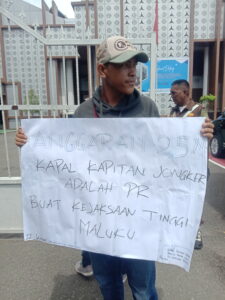 ANGGARAN 25M
KAPAL KAPITAN JONGKER
ADALAH PR
BUAT KEJAKSAAN TINGGI
MALUKU